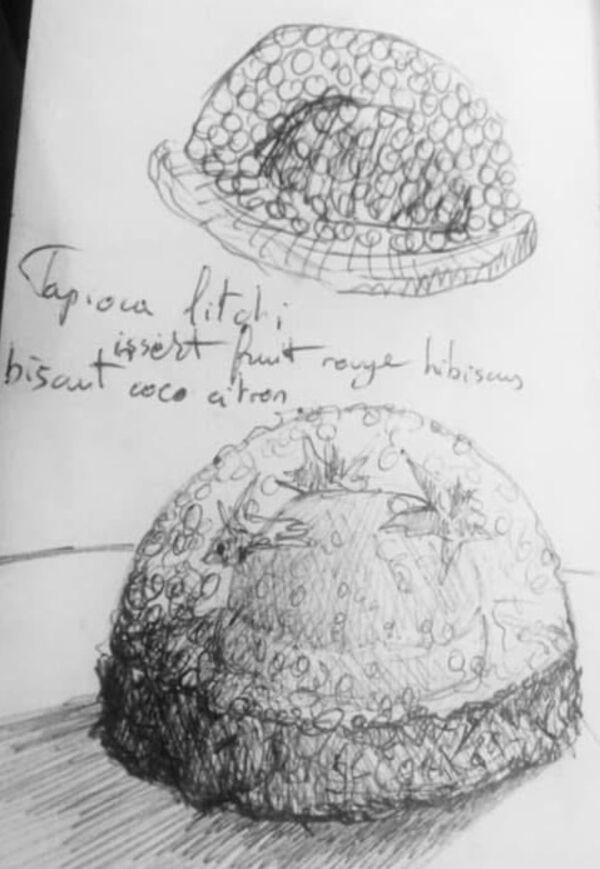 Tapioca litchi
insert fruit rouge hibiscus
biscuit coco citron